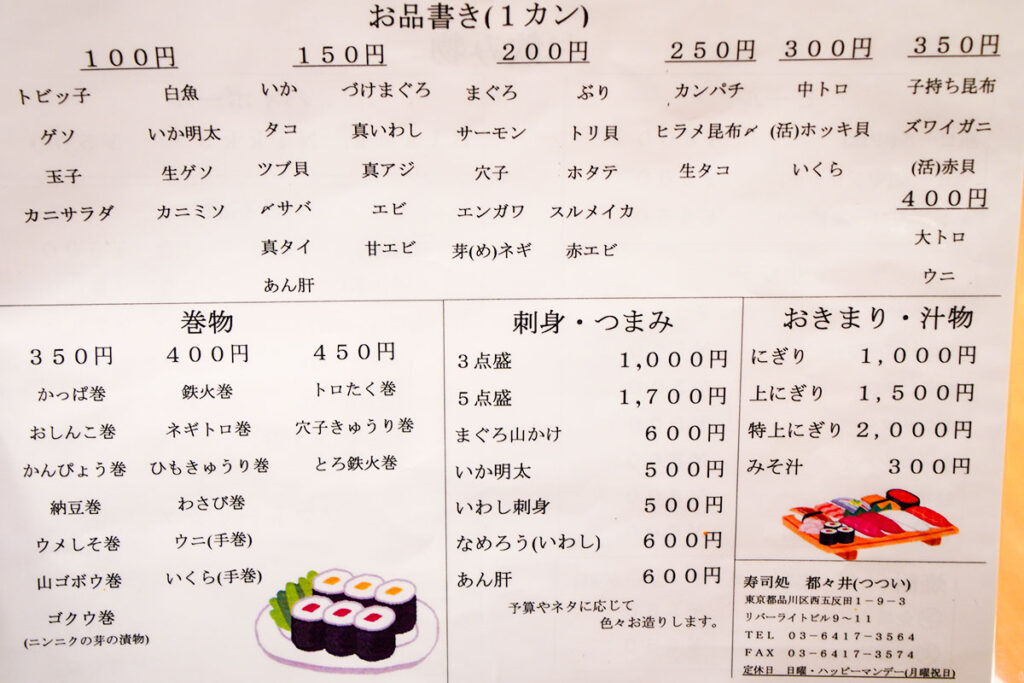 お品書き(１カン)
１００円　１５０円　２００円　２５０円　３００円　３５０円
トビッ子　白魚　いか　づけまぐろ　まぐろ　ぶり　カンパチ　中トロ　子持ち昆布
ゲソ　いか明太　タコ　真いわし　サーモン　トリ貝　ヒラメ昆布〆　(活)ホッキ貝　ズワイガニ
玉子　生ゲソ　ツブ貝　真アジ　穴子　ホタテ　生タコ　いくら　(活)赤貝
４００円
カニサラダ　カニミソ　〆サバ　エビ　エンガワ　スルメイカ　大トロ
真タイ　甘エビ　芽(め)ネギ　赤エビ　ウニ
あん肝
巻物
３５０円　４００円　４５０円
かっぱ巻　鉄火巻　トロたく巻
おしんこ巻　ネギトロ巻　穴子きゅうり巻
かんぴょう巻　ひもきゅうり巻　とろ鉄火巻
納豆巻　わさび巻
ウメしそ巻　ウニ(手巻)
山ゴボウ巻　いくら(手巻)
ゴクウ巻
(ニンニクの芽の漬物)
刺身・つまみ
３点盛　１,０００円
５点盛　１,７００円
まぐろ山かけ　６００円
いか明太　５００円
いわし刺身　５００円
なめろう(いわし)　６００円
あん肝　６００円
予算やネタに応じて
色々お造りします。
おきまり・汁物
にぎり　１,０００円
上にぎり　１,５００円
特上にぎり　２,０００円
みそ汁　３００円
寿司処　都々井(つつい)
東京都品川区西五反田１－９－３
リバーライトビル９～１１
ＴＥＬ　０３－６４１７－３５６４
ＦＡＸ　０３－６４１７－３５７４
定休日　日曜・ハッピーマンデー(月曜祝日)